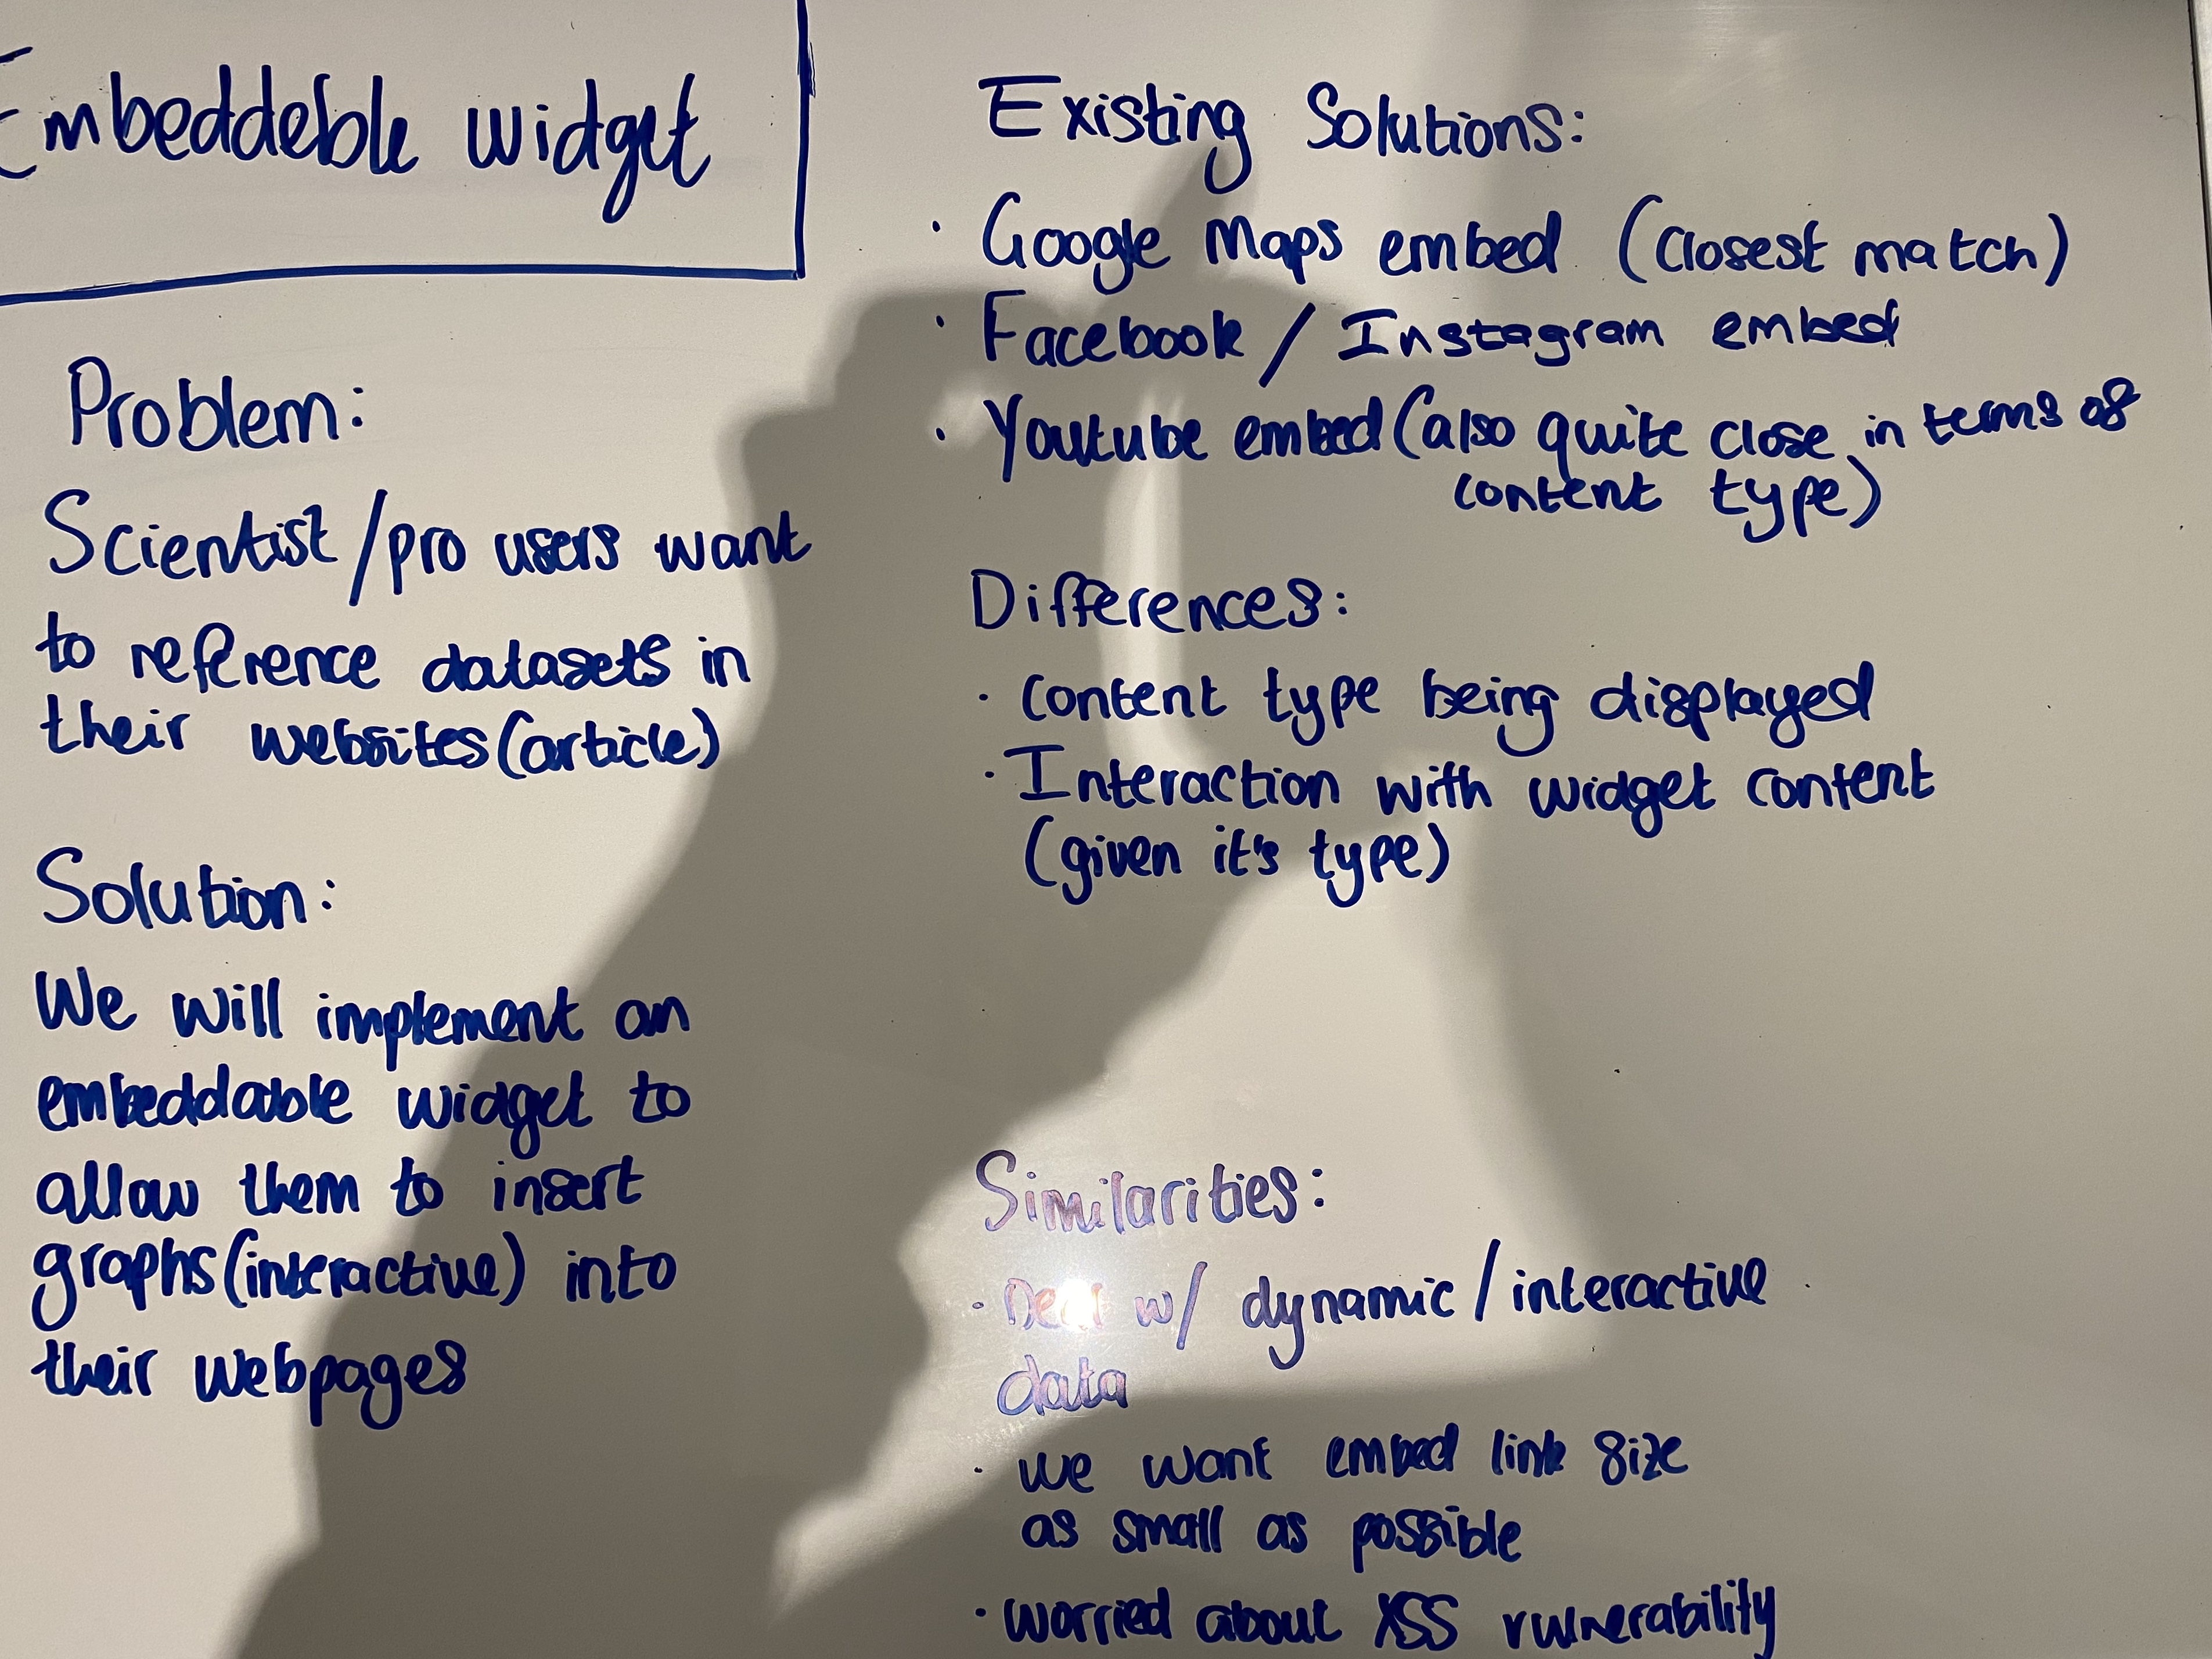 Embeddeble widget
Problem:
Scientist/pro users want
to reference datasets in
their websites(article)
Solution:
We will implement an
embeddable widget to
allow them to insert
graphs(interactive) into
their webpages
Existing Solutions:
· Google Maps embed (closest match)
· Facebook / Instagram embed
· Youtube embed (also quite close in terms of
content type)
Differences:
· content type being displayed
· Interaction with widget content
(given it's type)
Similarities:
· Deal w/ dynamic / interactive
data
· we want embed link size
as small as possible
· worried about XSS vulnerability